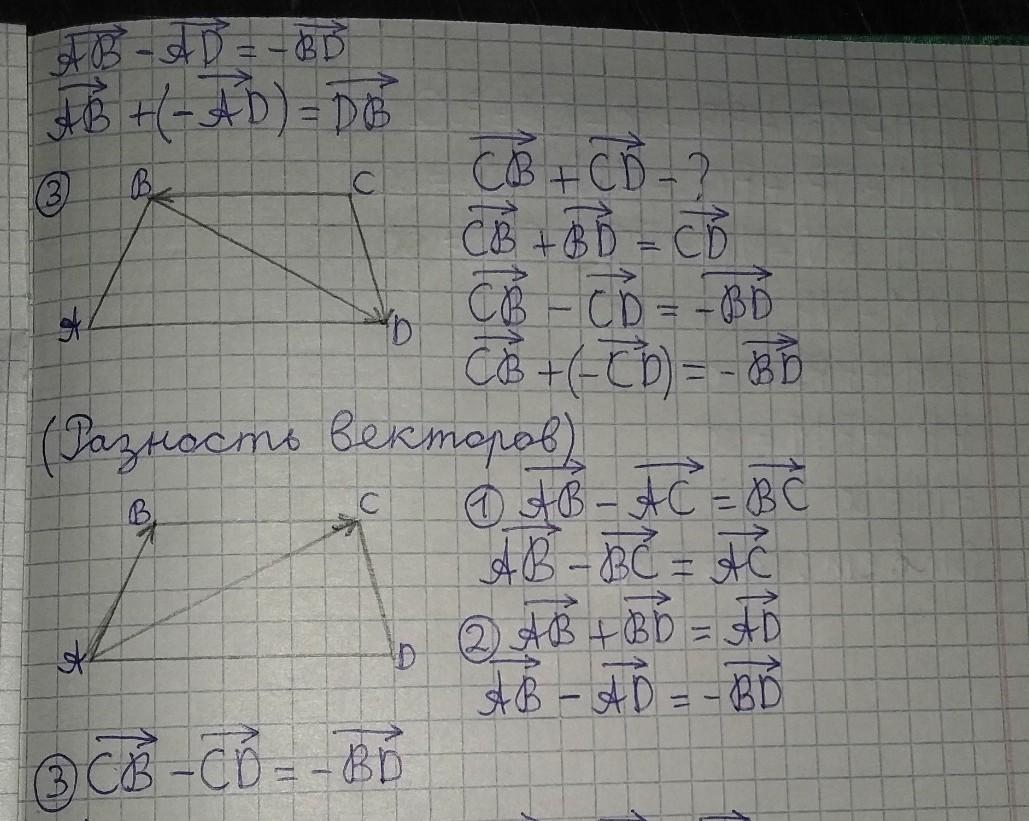 AB⃗ − AD⃗ = −BD⃗
AB⃗ + (−AD⃗) = DB⃗
③ B C
A D
CB⃗ + CD⃗ − ?
CB⃗ + BD⃗ = CD⃗
CB⃗ − CD⃗ = −BD⃗
CB⃗ + (−CD⃗) = −BD⃗
(Разность векторов)
B C
A D
① AB⃗ − AC⃗ = BC⃗
AB⃗ − BC⃗ = AC⃗
② AB⃗ + BD⃗ = AD⃗
AB⃗ − AD⃗ = −BD⃗
③ CB⃗ − CD⃗ = −BD⃗